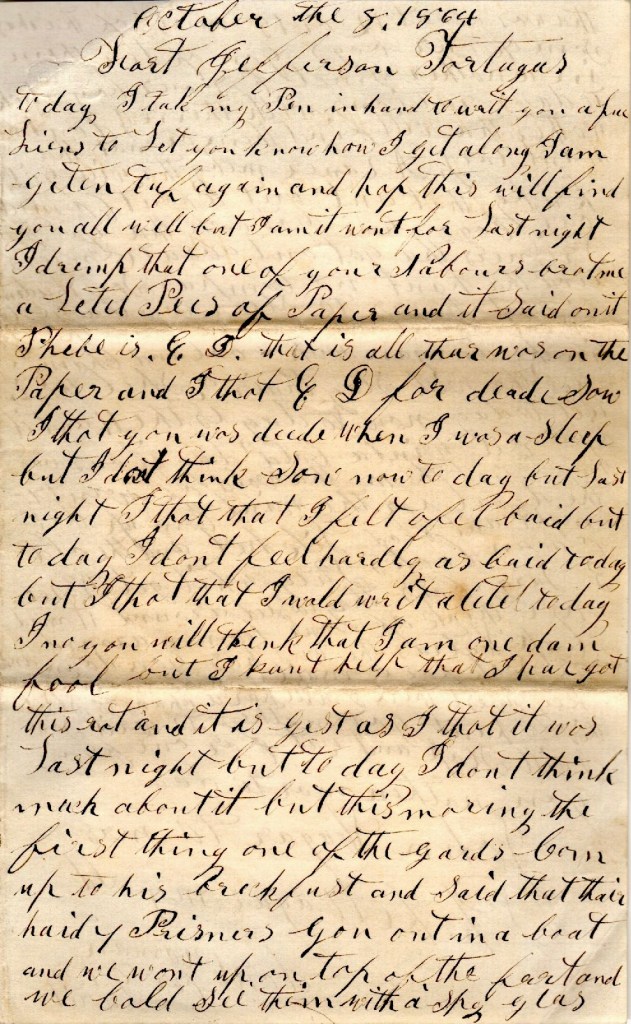 October the 8, 1864
Foart Jefferson Tortugus
to day I tak my Pen in hand to writ you a fue
Liens to Let you know how I get along I am
geten tuf again and hop this will find
you all well but I am it wont for Last night
I dremp that one of your Nabours brot me
a Letel Pees of Paper and it Said on it
Phebe is. E D. that is all thur was on the
Paper and I that E D for deade Sow
I that you was deede when I was a Sleep
but I dont think Sow now to day but Last
night I that that I felt ofel baid but
to day I dont feel hardly as baid to day
but I thot that I wald writ a litel to day
I no you will think that I am one dam
fool but I kant help that I hav got
this rot and it is gest as I that it was
Last night but to day I dont think
much about it but this moring the
first thing one of the gards Com
up to his breckfust and Said that thair
haid y Prisners gon out in a boat
and we wont up on top of the foart and
we cold See them with a Spy glas